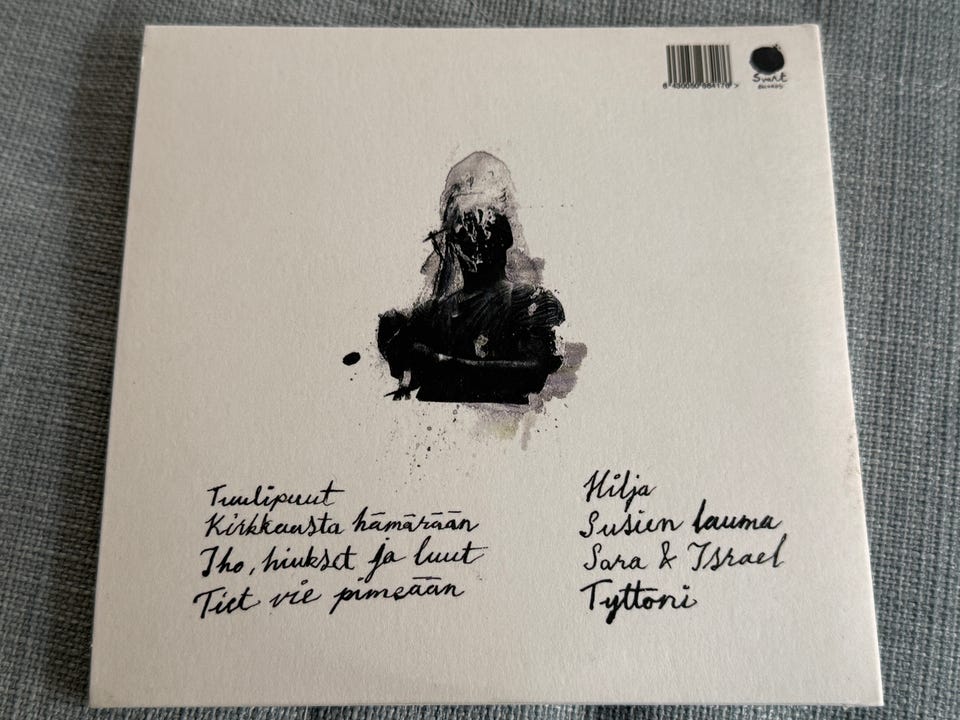 Svart
RECORDS
Tuulipuut
Kirkkausta hämärään
Iho, hiukset ja luut
Tiet vie pimeään
Hilja
Susien lauma
Sara & Israel
Tyttöni